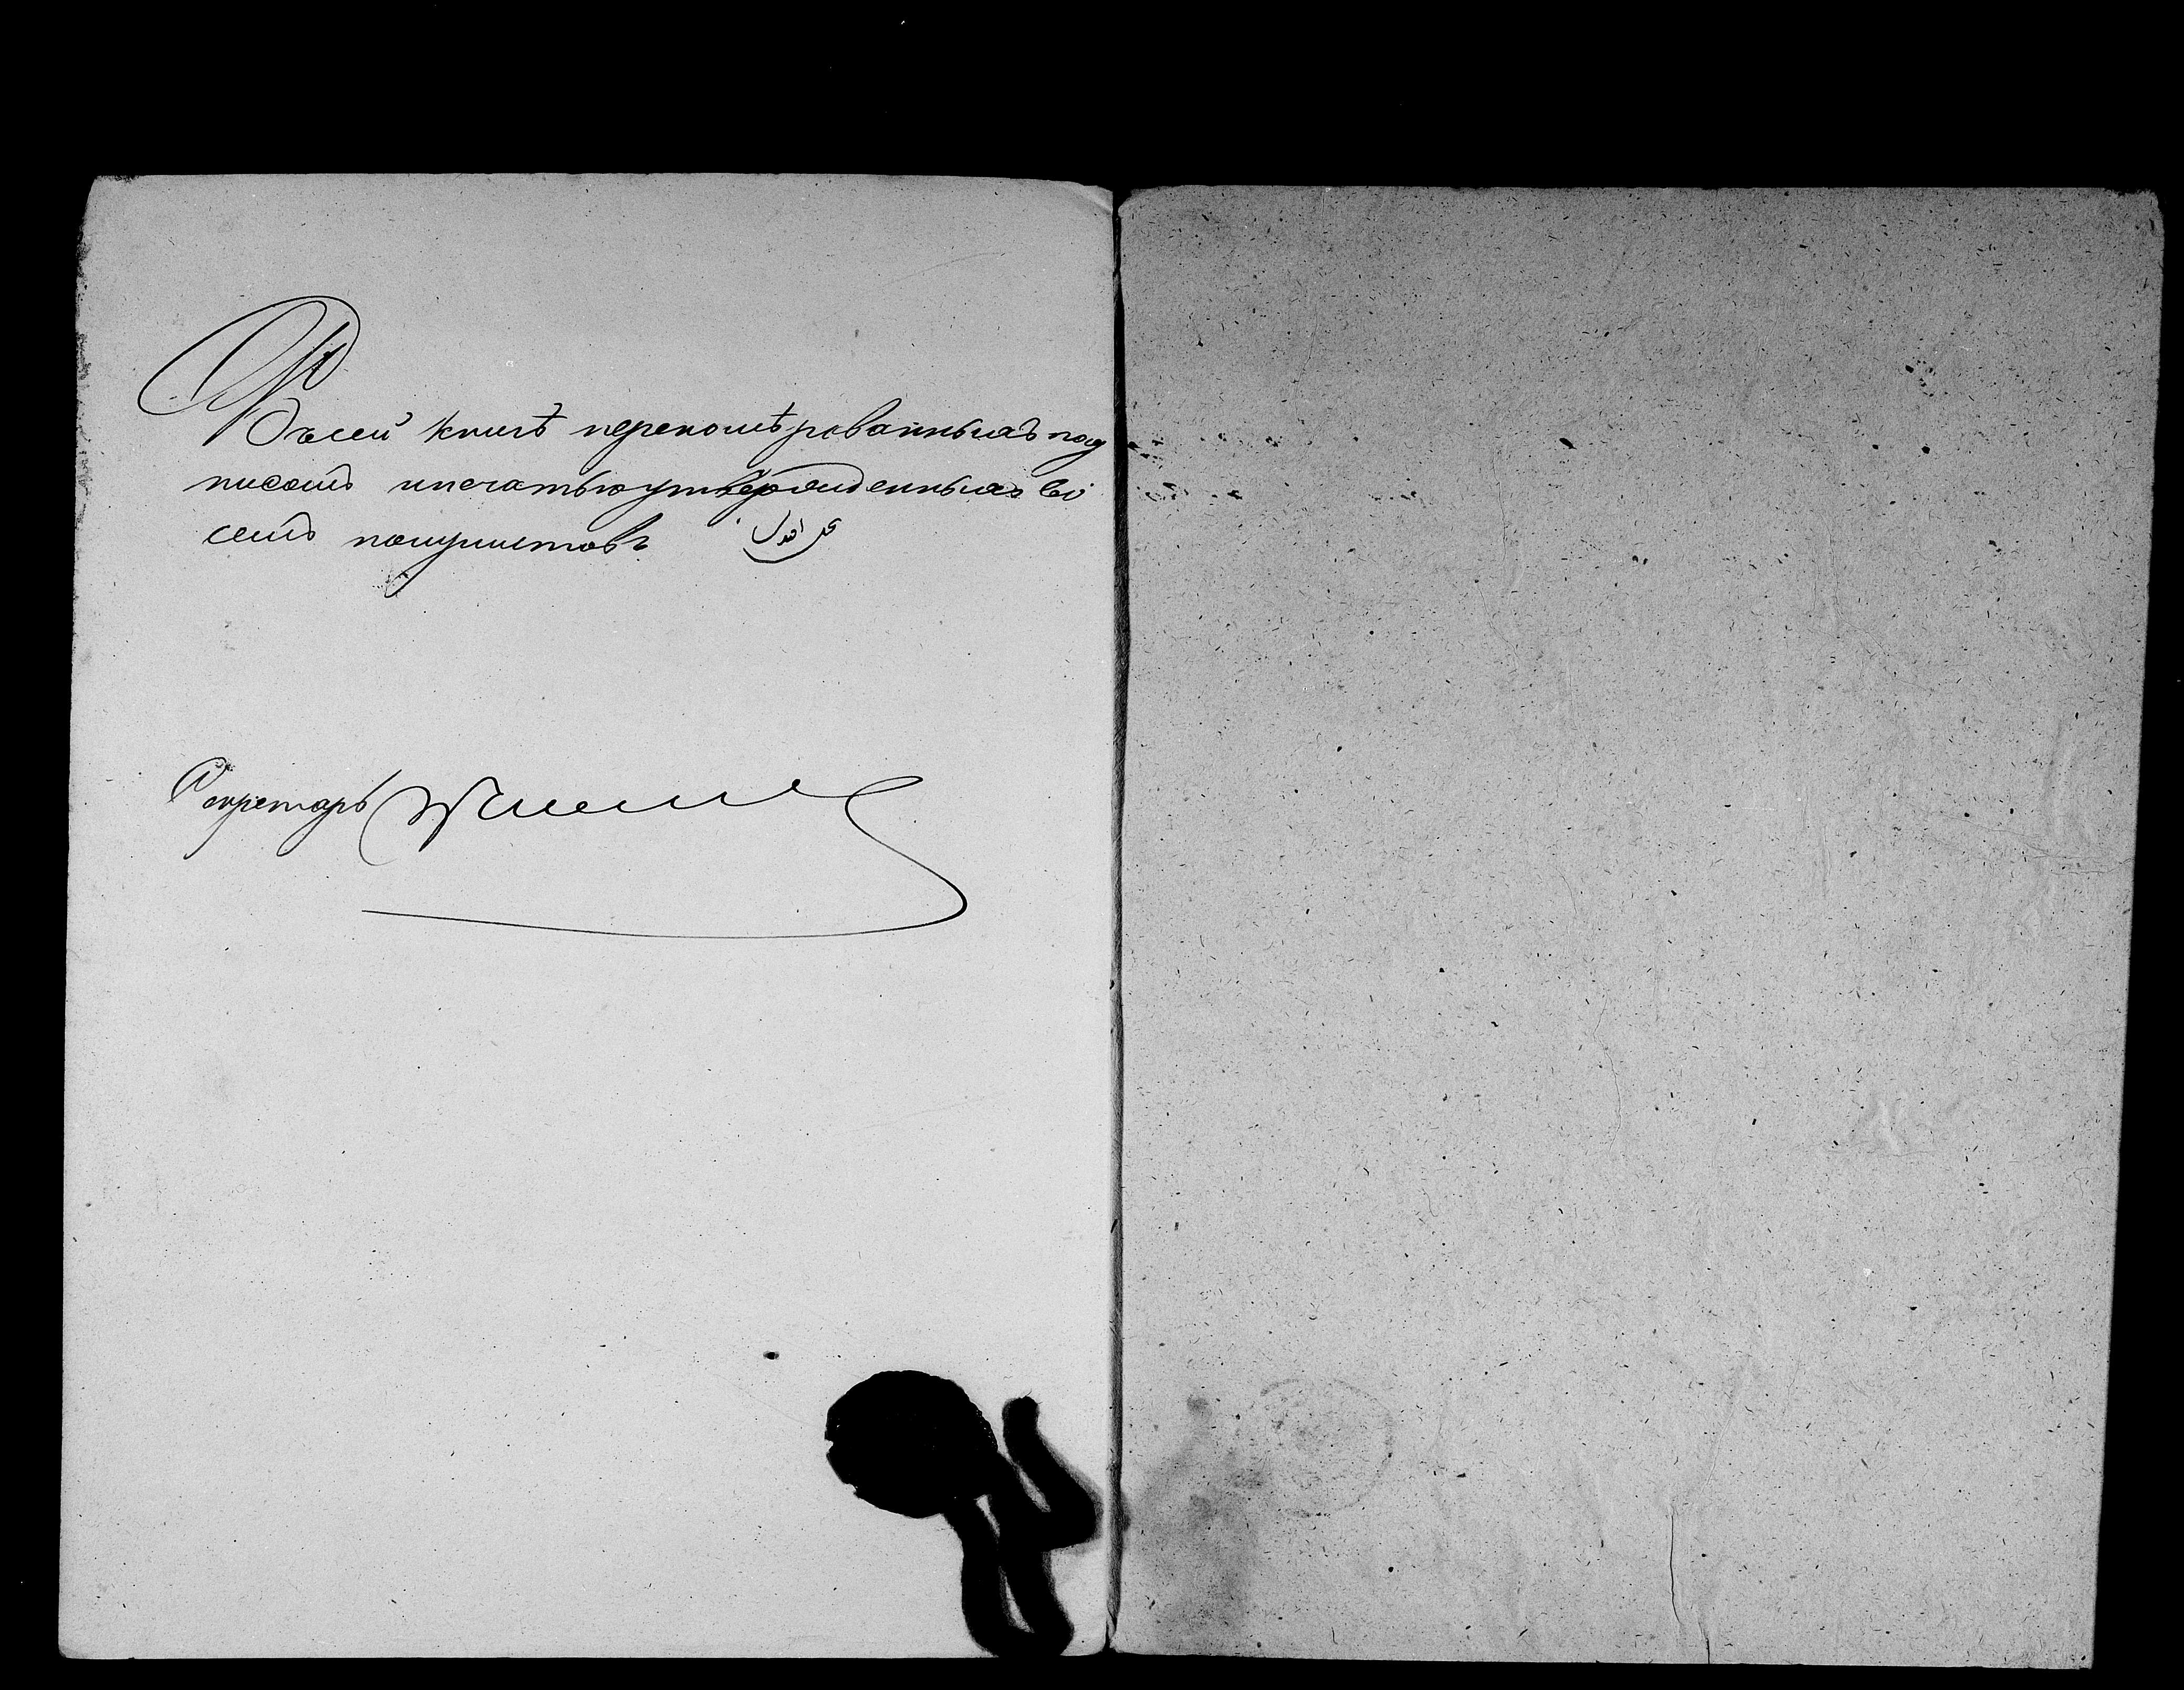 Въ сей книгѣ перекомѣрованныхъ под
писомъ и печатью утвержденныхъ во
семь полулистовъ
Секретарь